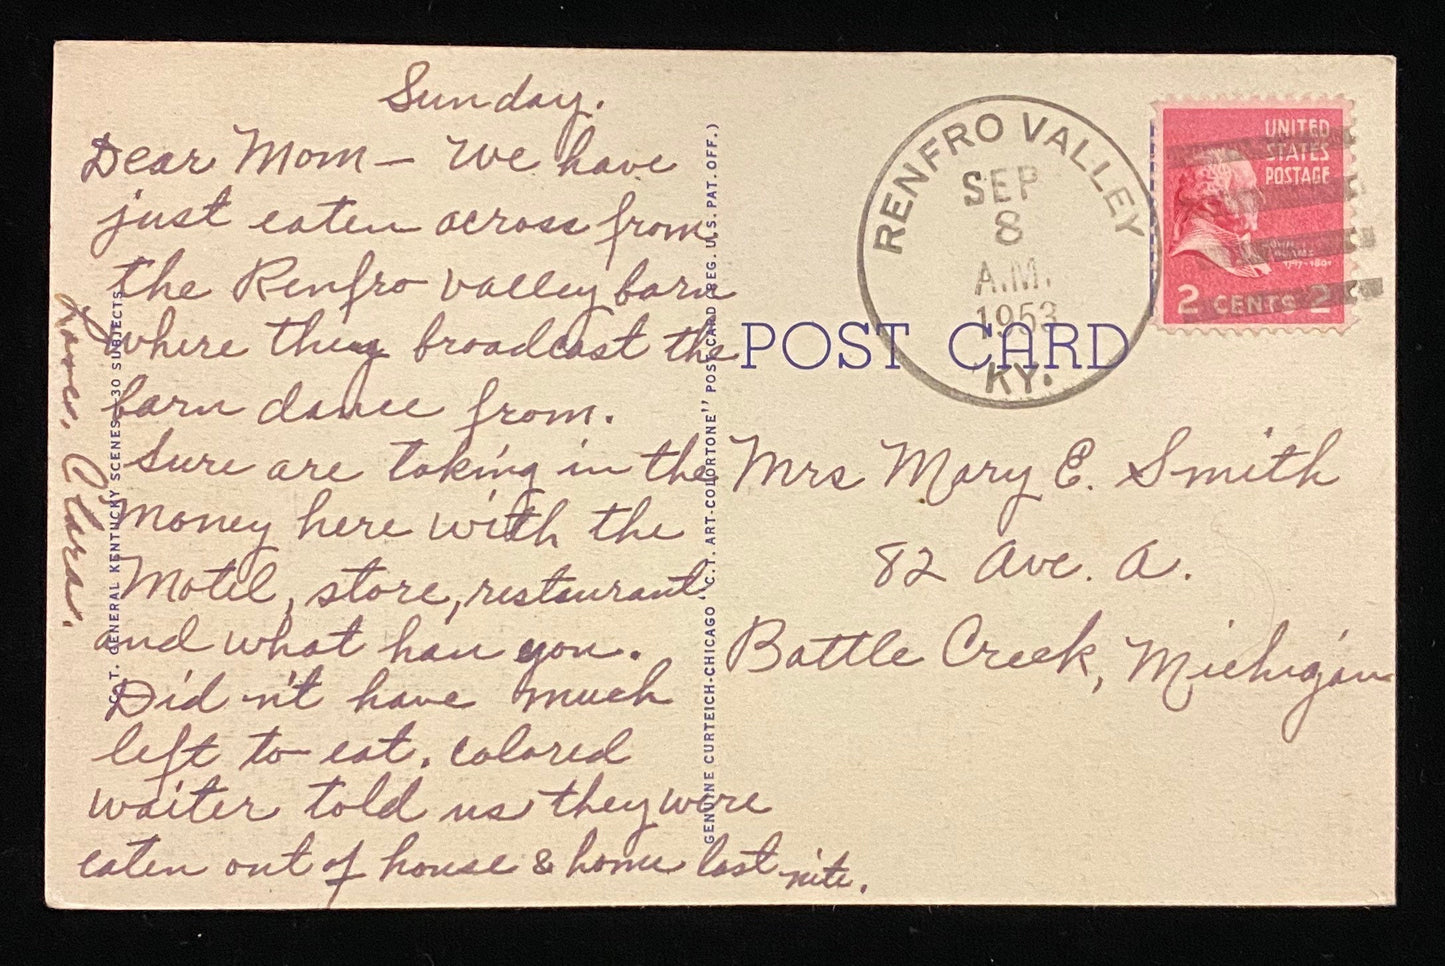 Sunday.
Dear Mom— We have
just eaten across from
the Renfro Valley barn
where they broadcast the
barn dance from.
Sure are taking in the
money here with the
Motel, store, restaurant
and what han you.
Didn't have much
left to eat. Colored
waiter told us they were
eaten out of house & home last nite.
Love, Clara.
C. T. GENERAL KENTUCKY SCENES—30 SUBJECTS
GENUINE CURTEICH-CHICAGO "C.T. ART-COLORTONE" POST CARD (REG. U. S. PAT. OFF.)
POST CARD
RENFRO VALLEY
SEP
8
A.M.
1953
KY.
UNITED
STATES
POSTAGE
JOHN
ADAMS
1797-1801
2 CENTS 2
Mrs Mary E. Smith
82 Ave. A.
Battle Creek, Michigan